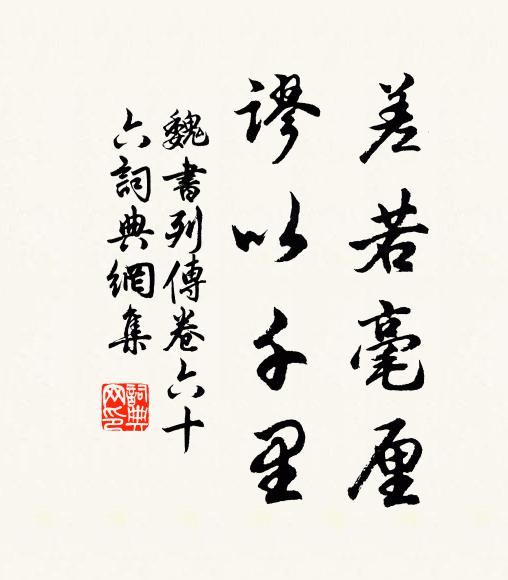 差若毫厘
謬以千里
魏書列傳卷六十
六詞典網集
詞典网印